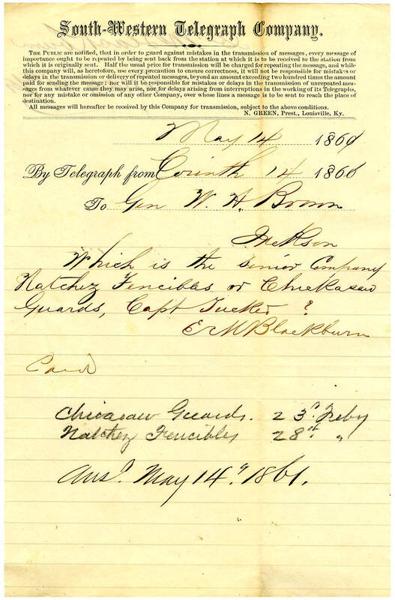 South-Western Telegraph Company.
The Public are notified, that in order to guard against mistakes in the transmission of messages, every message of
importance ought to be repeated by being sent back from the station at which it is to be received to the station from
which it is originally sent. Half the usual price for transmission will be charged for repeating the message, and while
this company will, as heretofore, use every precaution to ensure correctness, it will not be responsible for mistakes or
delays in the transmission or delivery of repeated messages, beyond an amount exceeding two hundred times the amount
paid for sending the message; nor will it be responsible for mistakes or delays in the transmission of unrepeated mes-
sages from whatever cause they may arise, nor for delays arising from interruptions in the working of its Telegraphs,
nor for any mistake or omission of any other Company, over whose lines a message is to be sent to reach the place of
destination.
All messages will hereafter be received by this Company for transmission, subject to the above conditions.
N. GREEN, Prest., Louisville, Ky.
May 14 1860
By Telegraph from Corinth 14 1860
To Gen W. H. Brown
Jackson
Which is the Senior Company
Natchez Fencibles or Chickasaw
Guards, Capt Tucker ?
E M Blackburn
Chicasaw Guards. 23d Feby
Natchez Fencibles 28th "
Ansd. May 14th 1861.